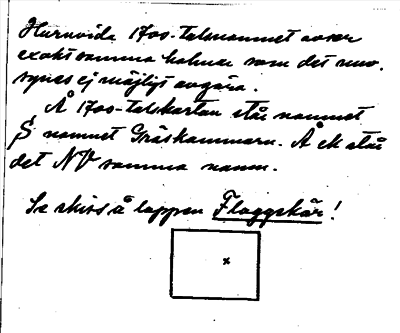 Huruvida 1700-talsnamnet avser
exakt samma holmar som det nuv.
synes ej möjligt avgöra.
Å 1700-talskartan står namnet
S namnet Gråskammarn. Å ek står
det NV samma namn.
Se skiss å lappen Flaggskär!
x